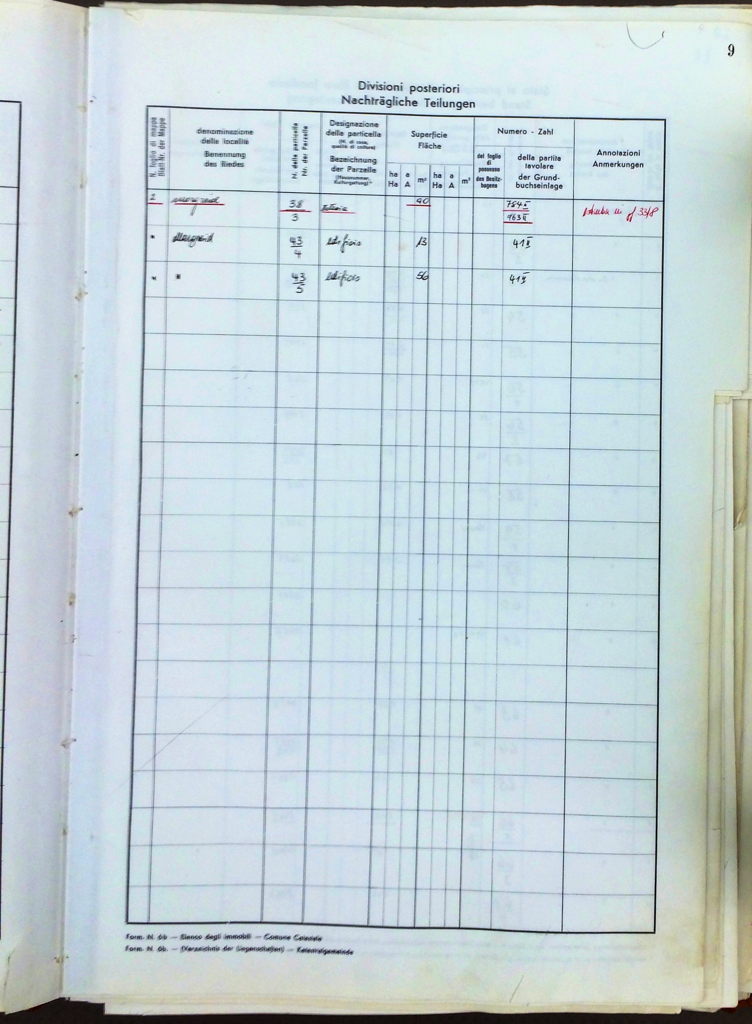 9
Divisioni posteriori
Nachträgliche Teilungen
N. foglio di mappa
Blatt-Nr. der Mappe
denominazione
delle località
Benennung
des Riedes
N. della particella
Nr. der Parzelle
Designazione
della particella
(N. di casa,
qualità di coltura)
Bezeichnung
der Parzelle
(Hausnummer,
Kulturgattung)
Superficie
Fläche
ha a m² ha a m²
Ha A Ha A
Numero - Zahl
del foglio
di
possesso
des Besitz-
bogens
della partita
tavolare
der Grund-
buchseinlage
Annotazioni
Anmerkungen
2 38 40 784 II 33/8
3 963 II
" 43 13 41 II
4
" " 43 edificio 56 41 II
5
Form. N. 6b — Elenco degli immobili — Comune Catastale
Form. N. 6b. — (Verzeichnis der Liegenschaften) — Katastralgemeinde